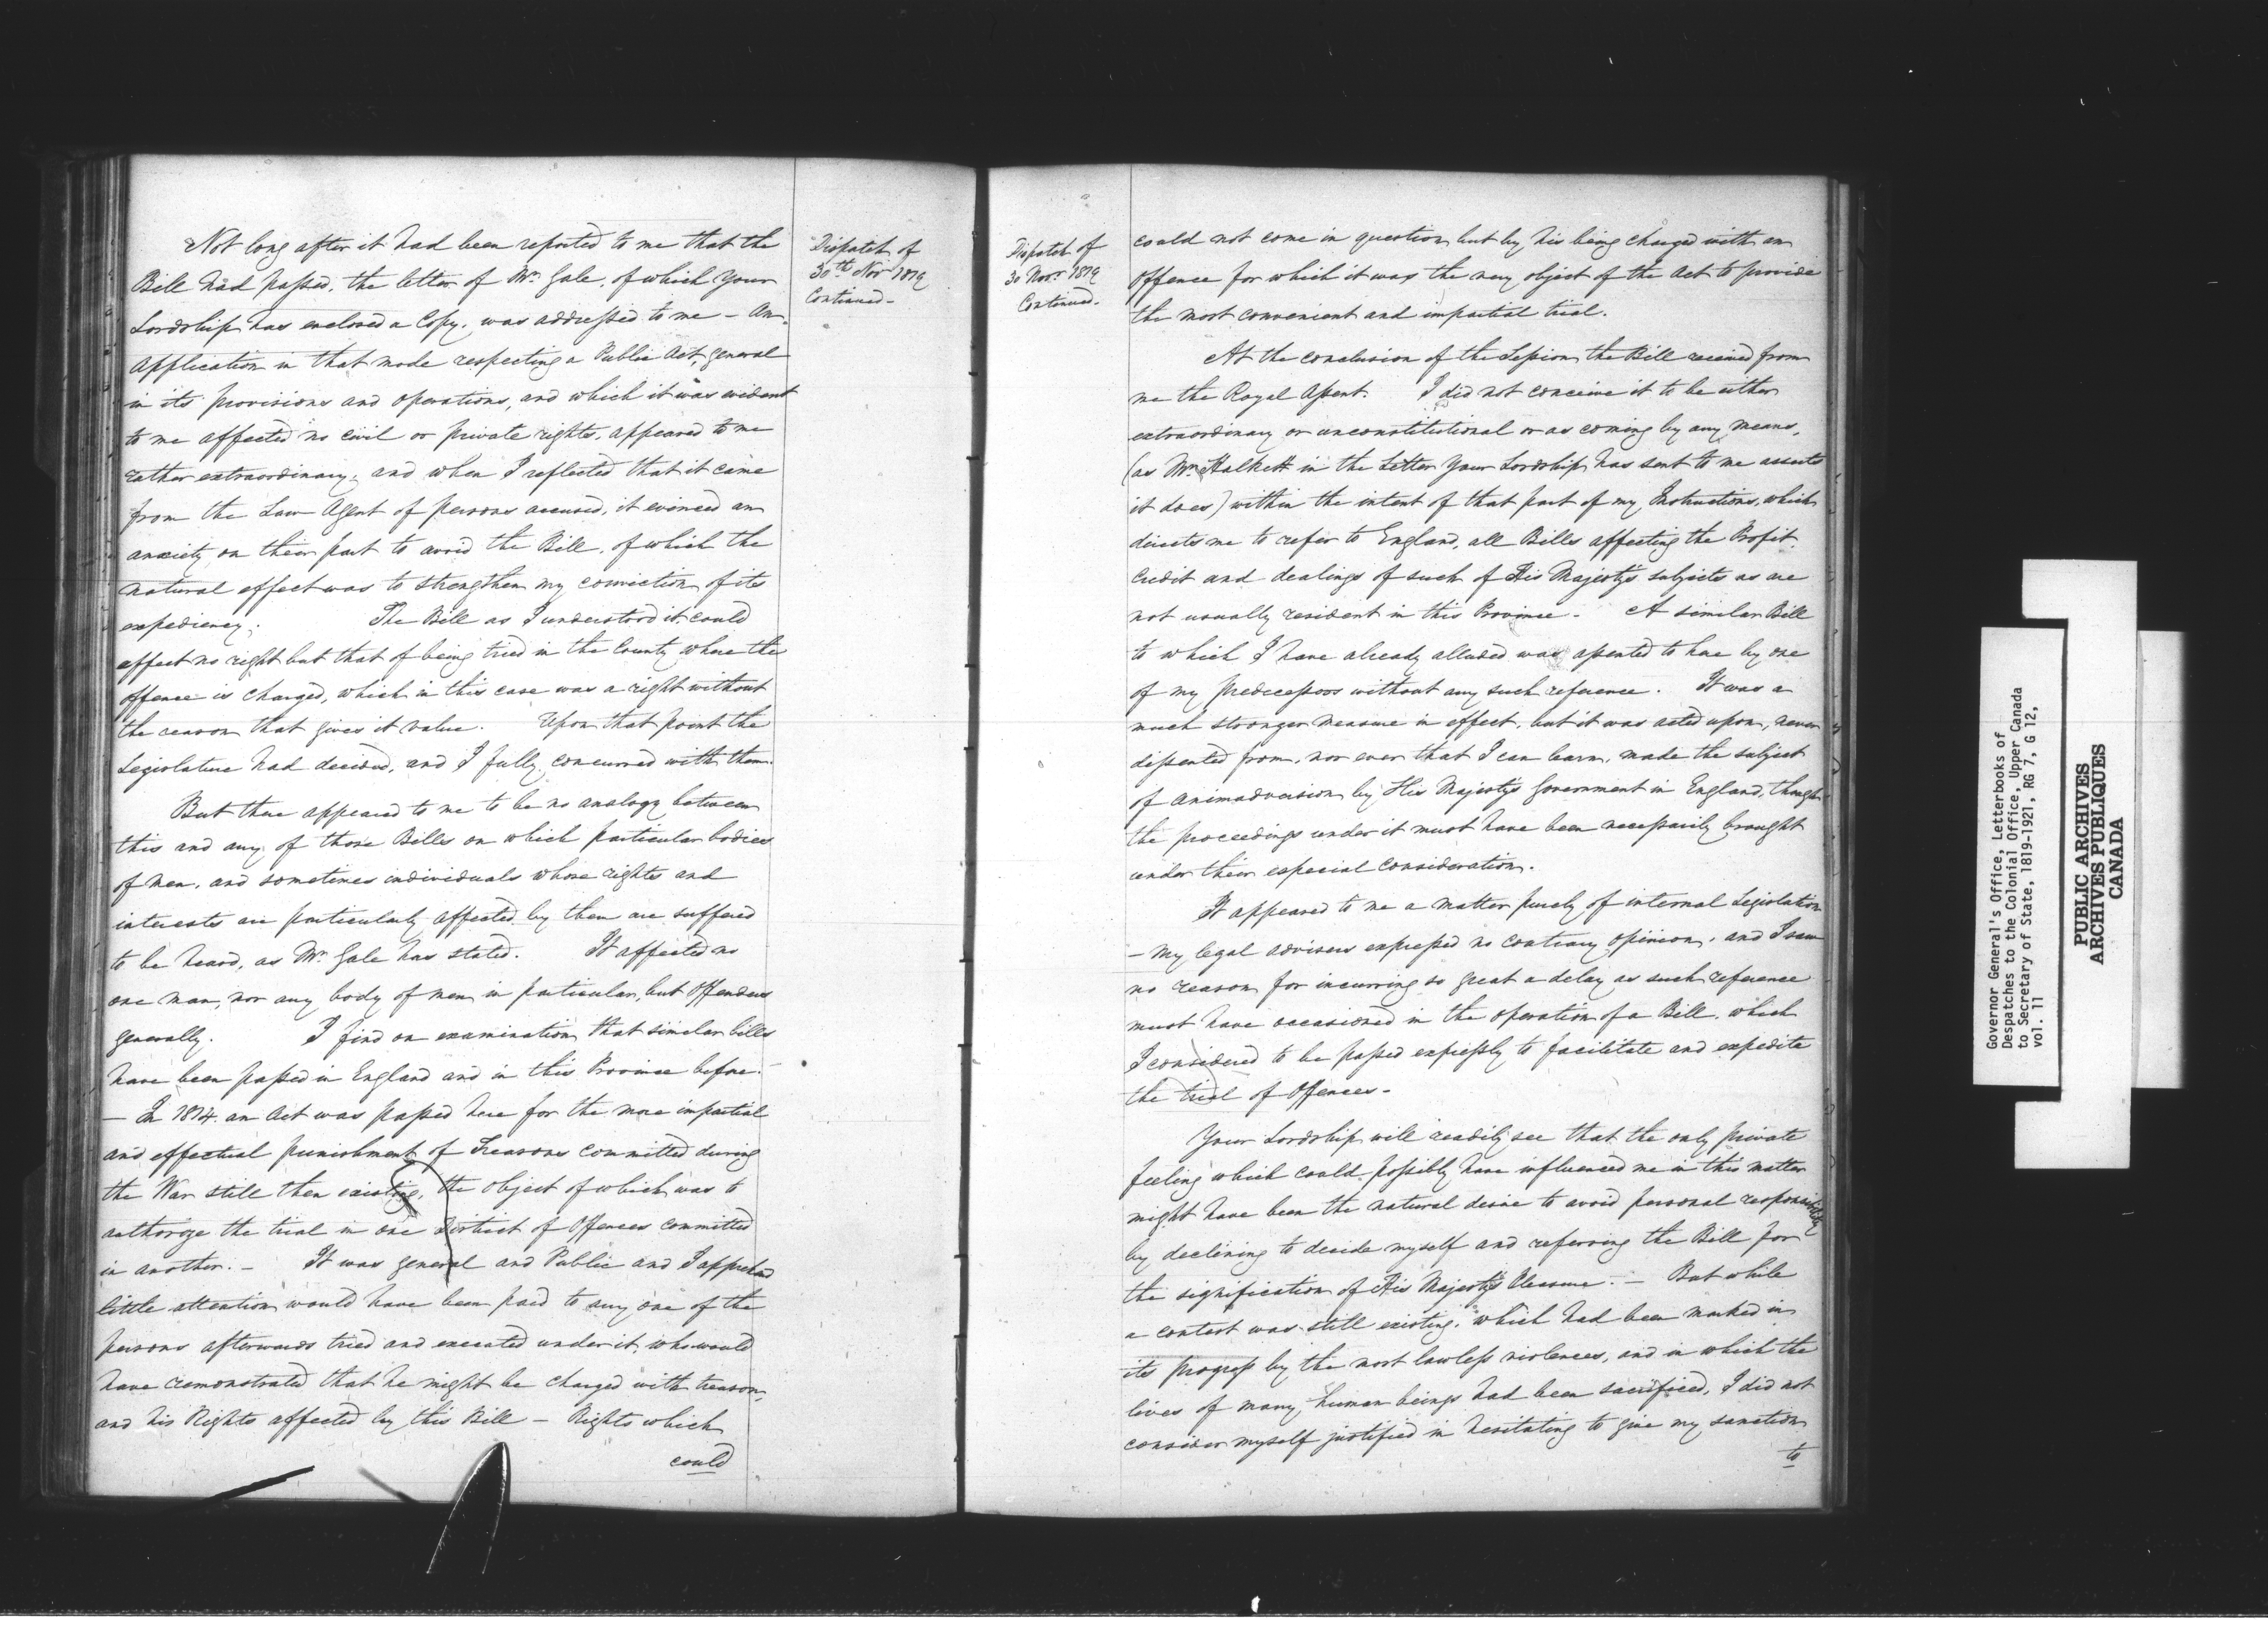 Not long after it had been reported to me that the
Bill had passed, the letter of Mr. Gale, of which Your
Lordship has enclosed a Copy, was addressed to me – An
application in that mode respecting a Public Act, general
in its provisions and operations, and which it was evident
to me affected no civil or private rights, appeared to me
rather extraordinary; and when I reflected that it came
from the Law Agent of persons accused, it evinced an
anxiety on their part to avoid the Bill, of which the
natural effect was to strengthen my conviction of its
expediency. The Bill as I understood it could
affect no right but that of being tried in the County where the
offence is charged, which in this case was a right without
the reason that gives it value. Upon that point the
Legislature had decided, and I fully concurred with them.
But there appeared to me to be no analogy between
this and any of those Bills on which particular bodies
of men, and sometimes individuals whose rights and
interests are particularly affected by them are suffered
to be heard, as Mr. Gale has stated. It affected no
one man, nor any body of men in particular, but Offenders
generally. I find on examination that similar bills
have been passed in England and in this Province before.
– In 1814 an Act was passed here for the more impartial
and effectual punishment of Treasons committed during
the War still then existing, the object of which was to
authorize the trial in one District of Offences committed
in another. – It was general and Public and I apprehend
little attention would have been paid to any one of the
persons afterwards tried and executed under it, who would
have remonstrated that he might be charged with treason,
and his Rights affected by this Bill – Rights which
could
Dispatch of
30th Nov 1819
Continued –
Dispatch of
30 Novr 1819
Continued –
could not come in question but by his being charged with an
Offence for which it was the very object of the Act to provide
the most convenient and impartial trial.
At the conclusion of the Session the Bill received from
me the Royal Assent. I did not conceive it to be either
extraordinary or unconstitutional or as coming by any means,
(as Mr. Halkett in the Letter Your Lordship has sent to me asserts
it does) within the intent of that part of my Instructions, which
directs me to refer to England, all Bills affecting the Profit
Credit and dealings of such of His Majesty's subjects as are
not usually resident in this Province – A similar Bill
to which I have already alluded was assented to here by one
of my predecessors without any such reference. It was a
much stronger measure in effect, but it was acted upon, never
dissented from, nor ever that I can learn, made the subject
of animadversion by His Majesty's Government in England, though
the proceedings under it must have been necessarily brought
under their especial consideration.
It appeared to me a matter purely of internal Legislation
– My legal advisers expressed no contrary opinion, and I saw
no reason for incurring so great a delay as such reference
must have occasioned in the operation of a Bill, which
I considered to be passed expressly to facilitate and expedite
the trial of Offences –
Your Lordship will readily see that the only private
feeling which could possibly have influenced me in this matter
might have been the natural desire to avoid personal responsibility
by declining to decide myself and referring the Bill for
the signification of His Majesty's Pleasure. – But while
a contest was still existing, which had been marked in
its progress by the most lawless violences, and in which the
lives of many human beings had been sacrificed, I did not
consider myself justified in hesitating to give my sanction
to
Governor General's Office, Letterbooks of
Despatches to the Colonial Office, Upper Canada
to Secretary of State, 1819-1921, RG 7, G 12,
vol. 11
PUBLIC ARCHIVES
ARCHIVES PUBLIQUES
CANADA